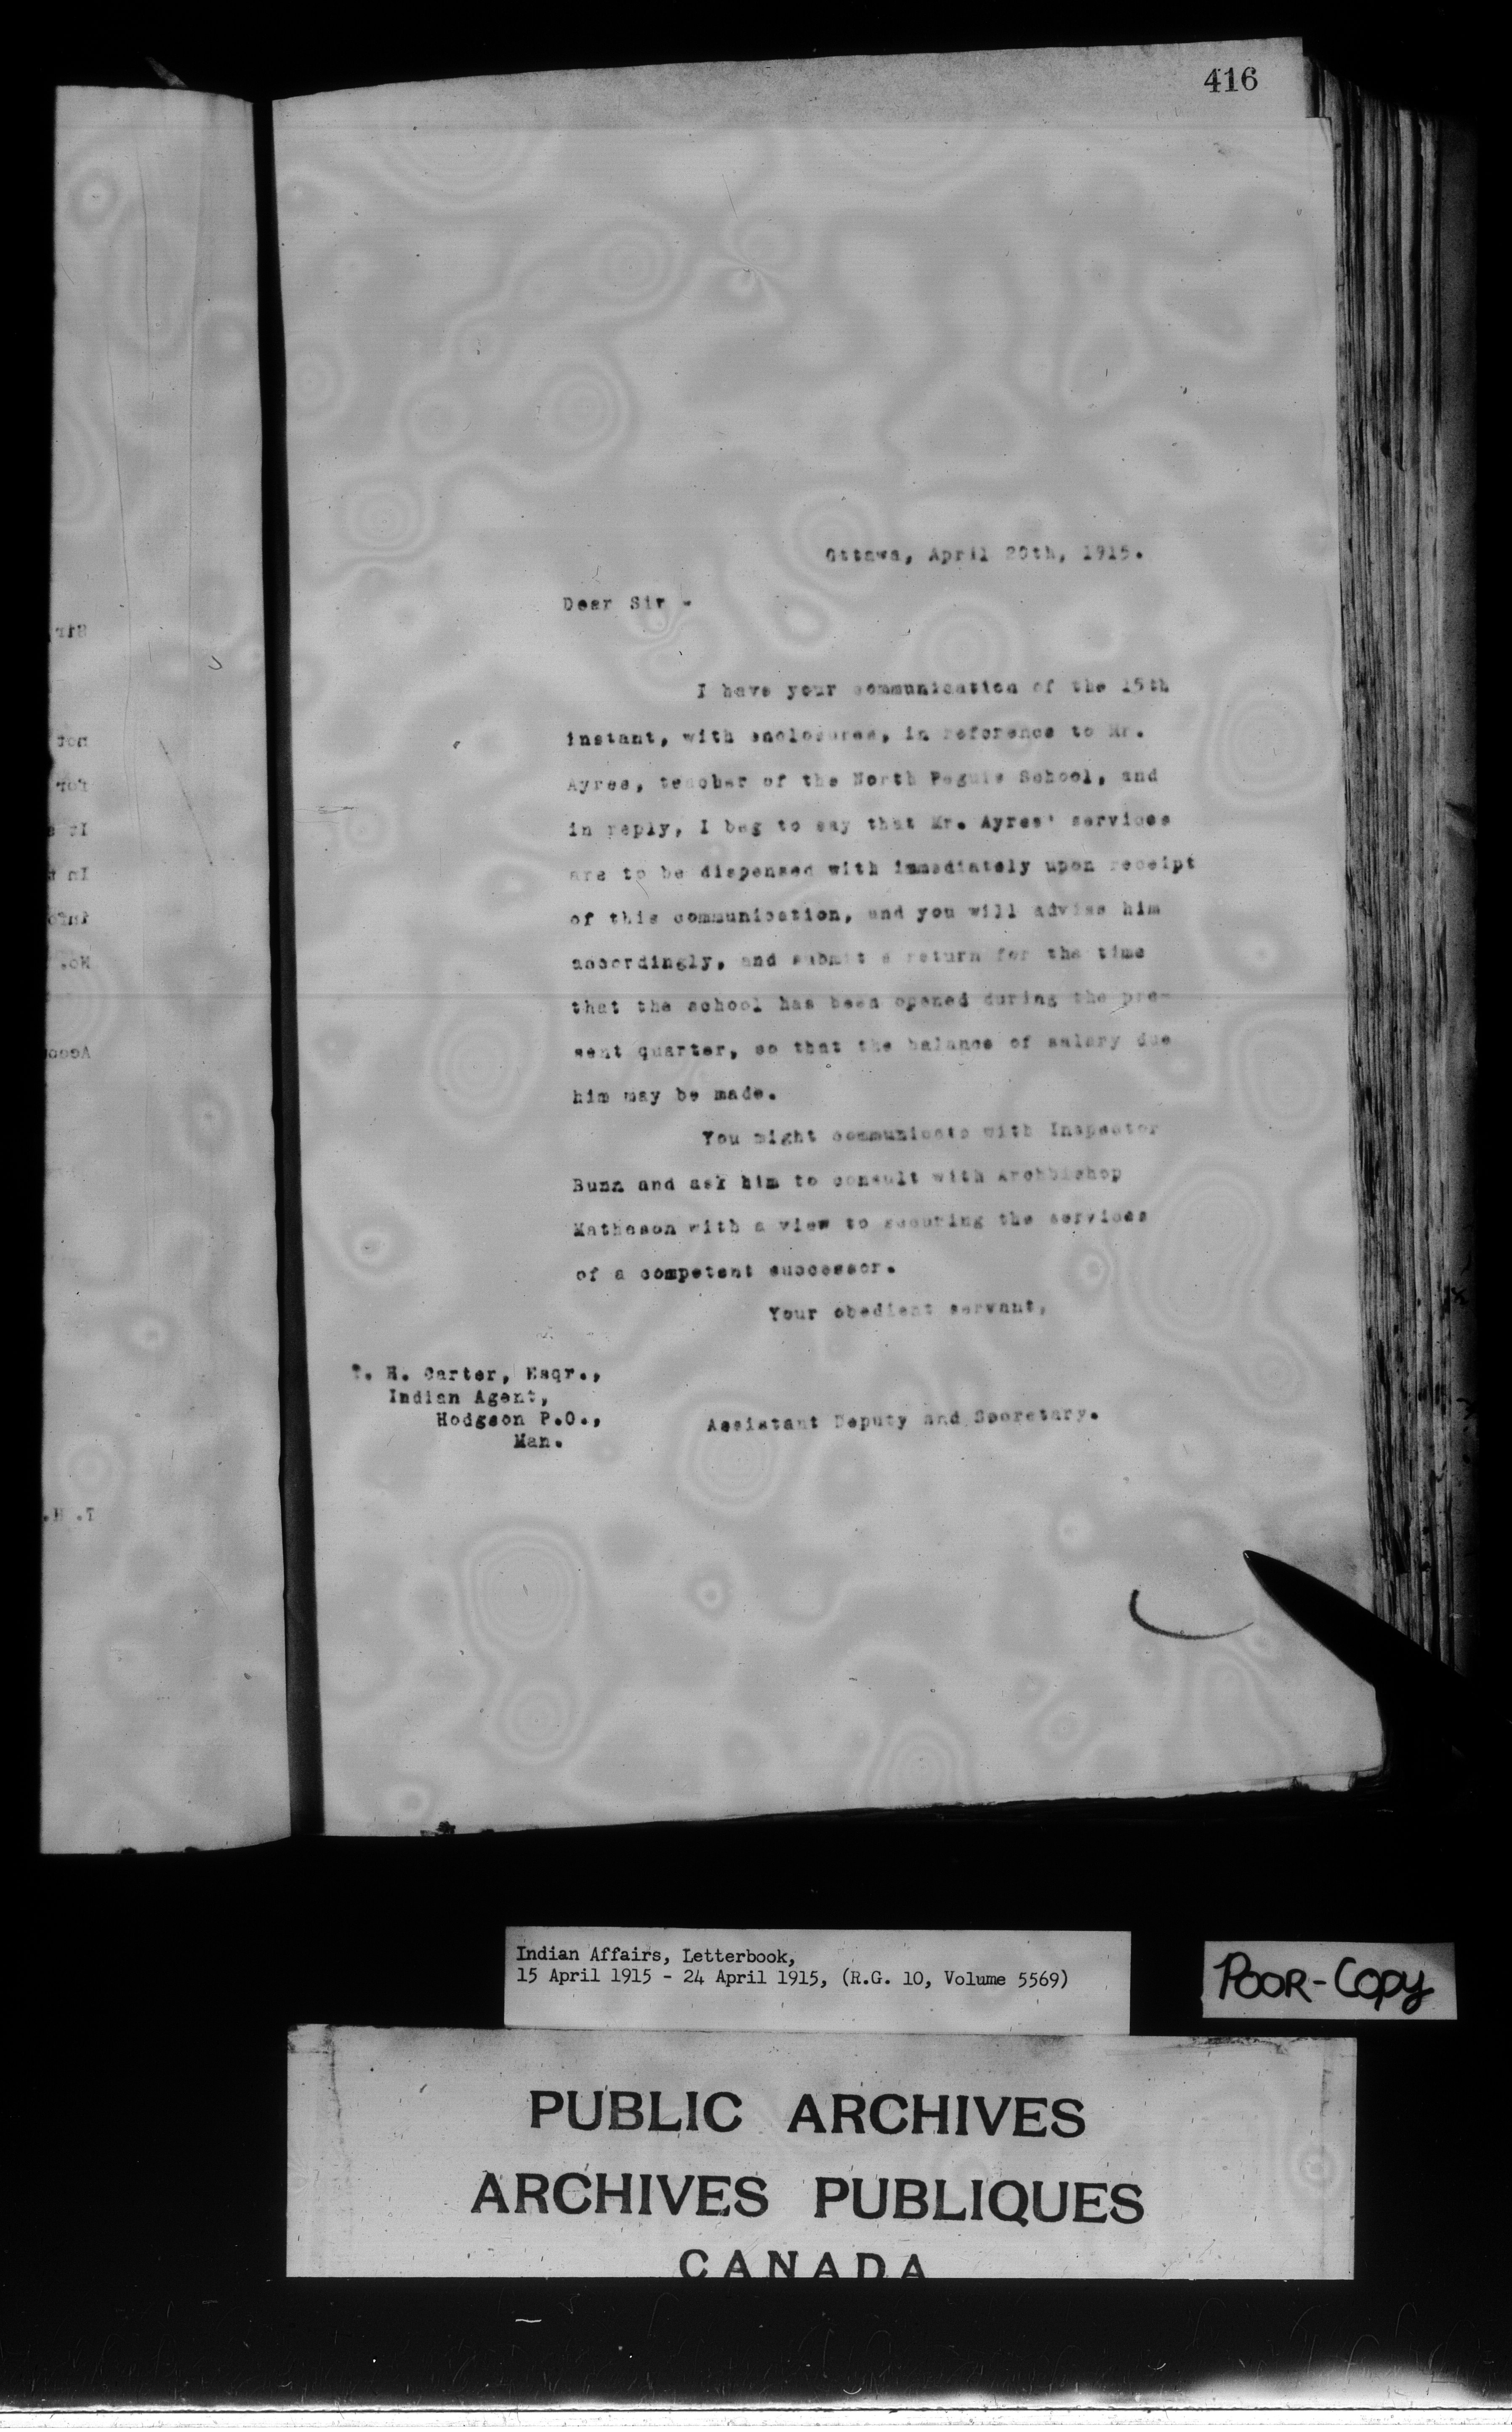 416
Ottawa, April 20th, 1915.
Dear Sir -
I have your communication of the 15th
instant, with enclosures, in reference to Mr.
Ayres, teacher of the North Peguis School, and
in reply, I beg to say that Mr. Ayres' services
are to be dispensed with immediately upon receipt
of this communication, and you will advise him
accordingly, and submit a return for the time
that the school has been opened during the pre-
sent quarter, so that the balance of salary due
him may be made.
You might communicate with Inspector
Bunn and ask him to consult with Archbishop
Matheson with a view to securing the services
of a competent successor.
Your obedient servant,
T. H. Carter, Esqr.,
Indian Agent,
Hodgson P.O.,
Man.
Assistant Deputy and Secretary.
Indian Affairs, Letterbook,
15 April 1915 - 24 April 1915, (R.G. 10, Volume 5569)
POOR-COPY
PUBLIC ARCHIVES
ARCHIVES PUBLIQUES
CANADA